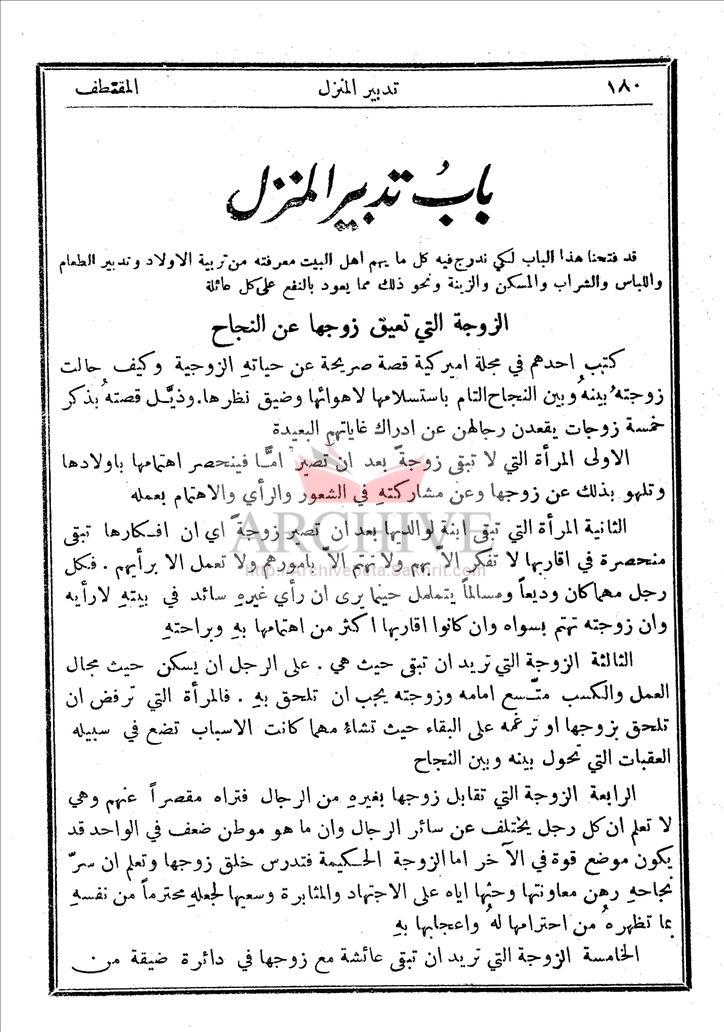 ١٨٠ تدبير المنزل المقتطف
بابُ تدبير المنزل
قد فتحنا هذا الباب لكي ندرج فيه كل ما يهم اهل البيت معرفته من تربية الاولاد وتدبير الطعام
واللباس والشراب والمسكن والزينة ونحو ذلك مما يعود بالنفع على كل عائلة
الزوجة التي تعيق زوجها عن النجاح
كتب احدهم في مجلة اميركية قصة صريحة عن حياتهِ الزوجية وكيف حالت
زوجتهُ بينهُ وبين النجاح التام باستسلامها لاهوائها وضيق نظرها. وذيَّل قصتهُ بذكر
خمسة زوجات يقعدن رجالهن عن ادراك غاياتهم البعيدة
الاولى المرأة التي لا تبقى زوجةً بعد ان تصير امًّا فينحصر اهتمامها باولادها
وتلهو بذلك عن زوجها وعن مشاركتهِ في الشعور والرأي والاهتمام بعمله
الثانية المرأة التي تبقى ابنة لوالديها بعد ان تصير زوجةً اي ان افكارها تبقى
منحصرة في اقاربها لا تفكر الاَّ بهم ولا تهتم الاَّ بامورهم ولا تعمل الا برأيهم . فكل
رجل مهما كان وديعاً ومسالماً يتململ حينما يرى ان رأي غيرهِ سائد في بيتهِ لا رأيه
وان زوجته تهتم بسواه وان كانوا اقاربها اكثر من اهتمامها بهِ وبراحتهِ
الثالثة الزوجة التي تريد ان تبقى حيث هي . على الرجل ان يسكن حيث مجال
العمل والكسب متَّسع امامه وزوجته يجب ان تلحق بهِ . فالمرأة التي ترفض ان
تلحق بزوجها او ترغمه على البقاء حيث تشاءُ مهما كانت الاسباب تضع في سبيله
العقبات التي تحول بينه وبين النجاح
الرابعة الزوجة التي تقابل زوجها بغيرهِ من الرجال فتراه مقصراً عنهم وهي
لا تعلم ان كل رجل يختلف عن سائر الرجال وان ما هو موطن ضعف في الواحد قد
يكون موضع قوة في الآخر اما الزوجة الحكيمة فتدرس خلق زوجها وتعلم ان سرّ
نجاحهِ رهن معاونتها وحثها اياه على الاجتهاد والمثابرة وسعيها لجعلهِ محترماً من نفسهِ
بما تظهرهُ من احترامها لهُ واعجابها بهِ
الخامسة الزوجة التي تريد ان تبقى عائشة مع زوجها في دائرة ضيقة من
ARCHIVE
http://Archivebeta.Sakhrit.com